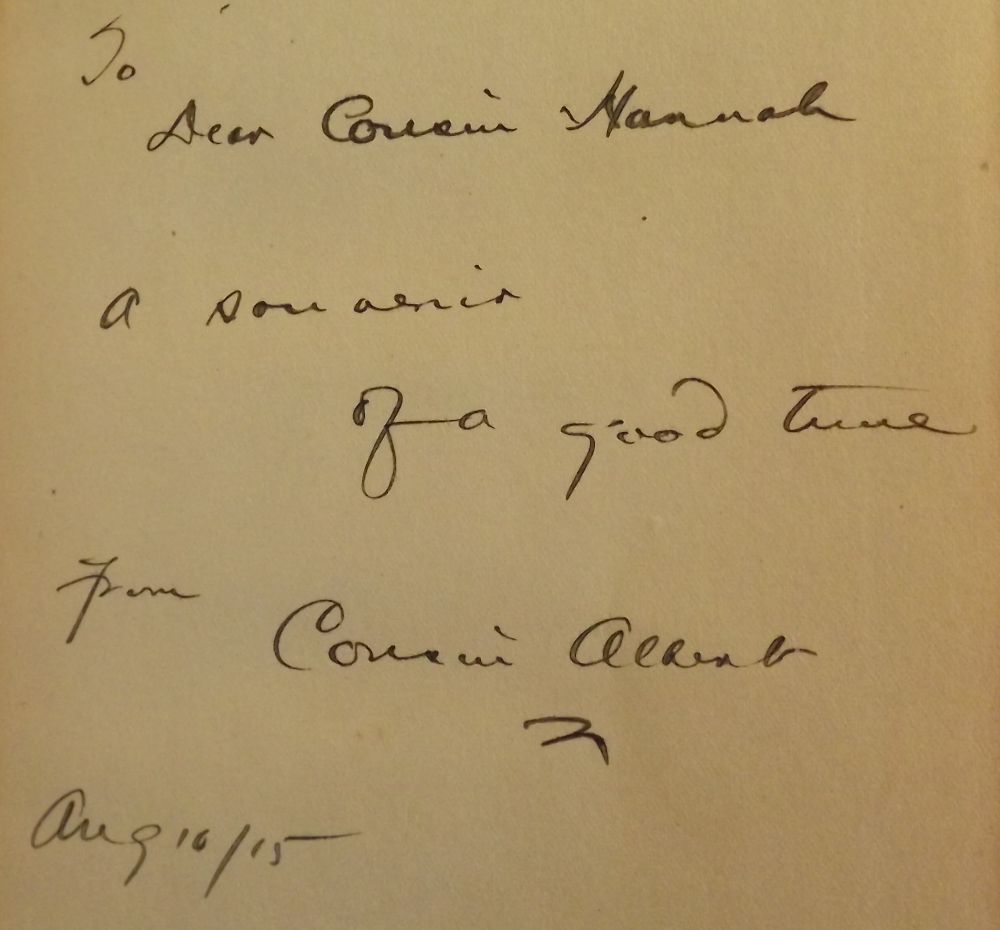 To
Dear Cousin Hannah
a souvenir
of a good time
from
Cousin Albert
Aug 10/15